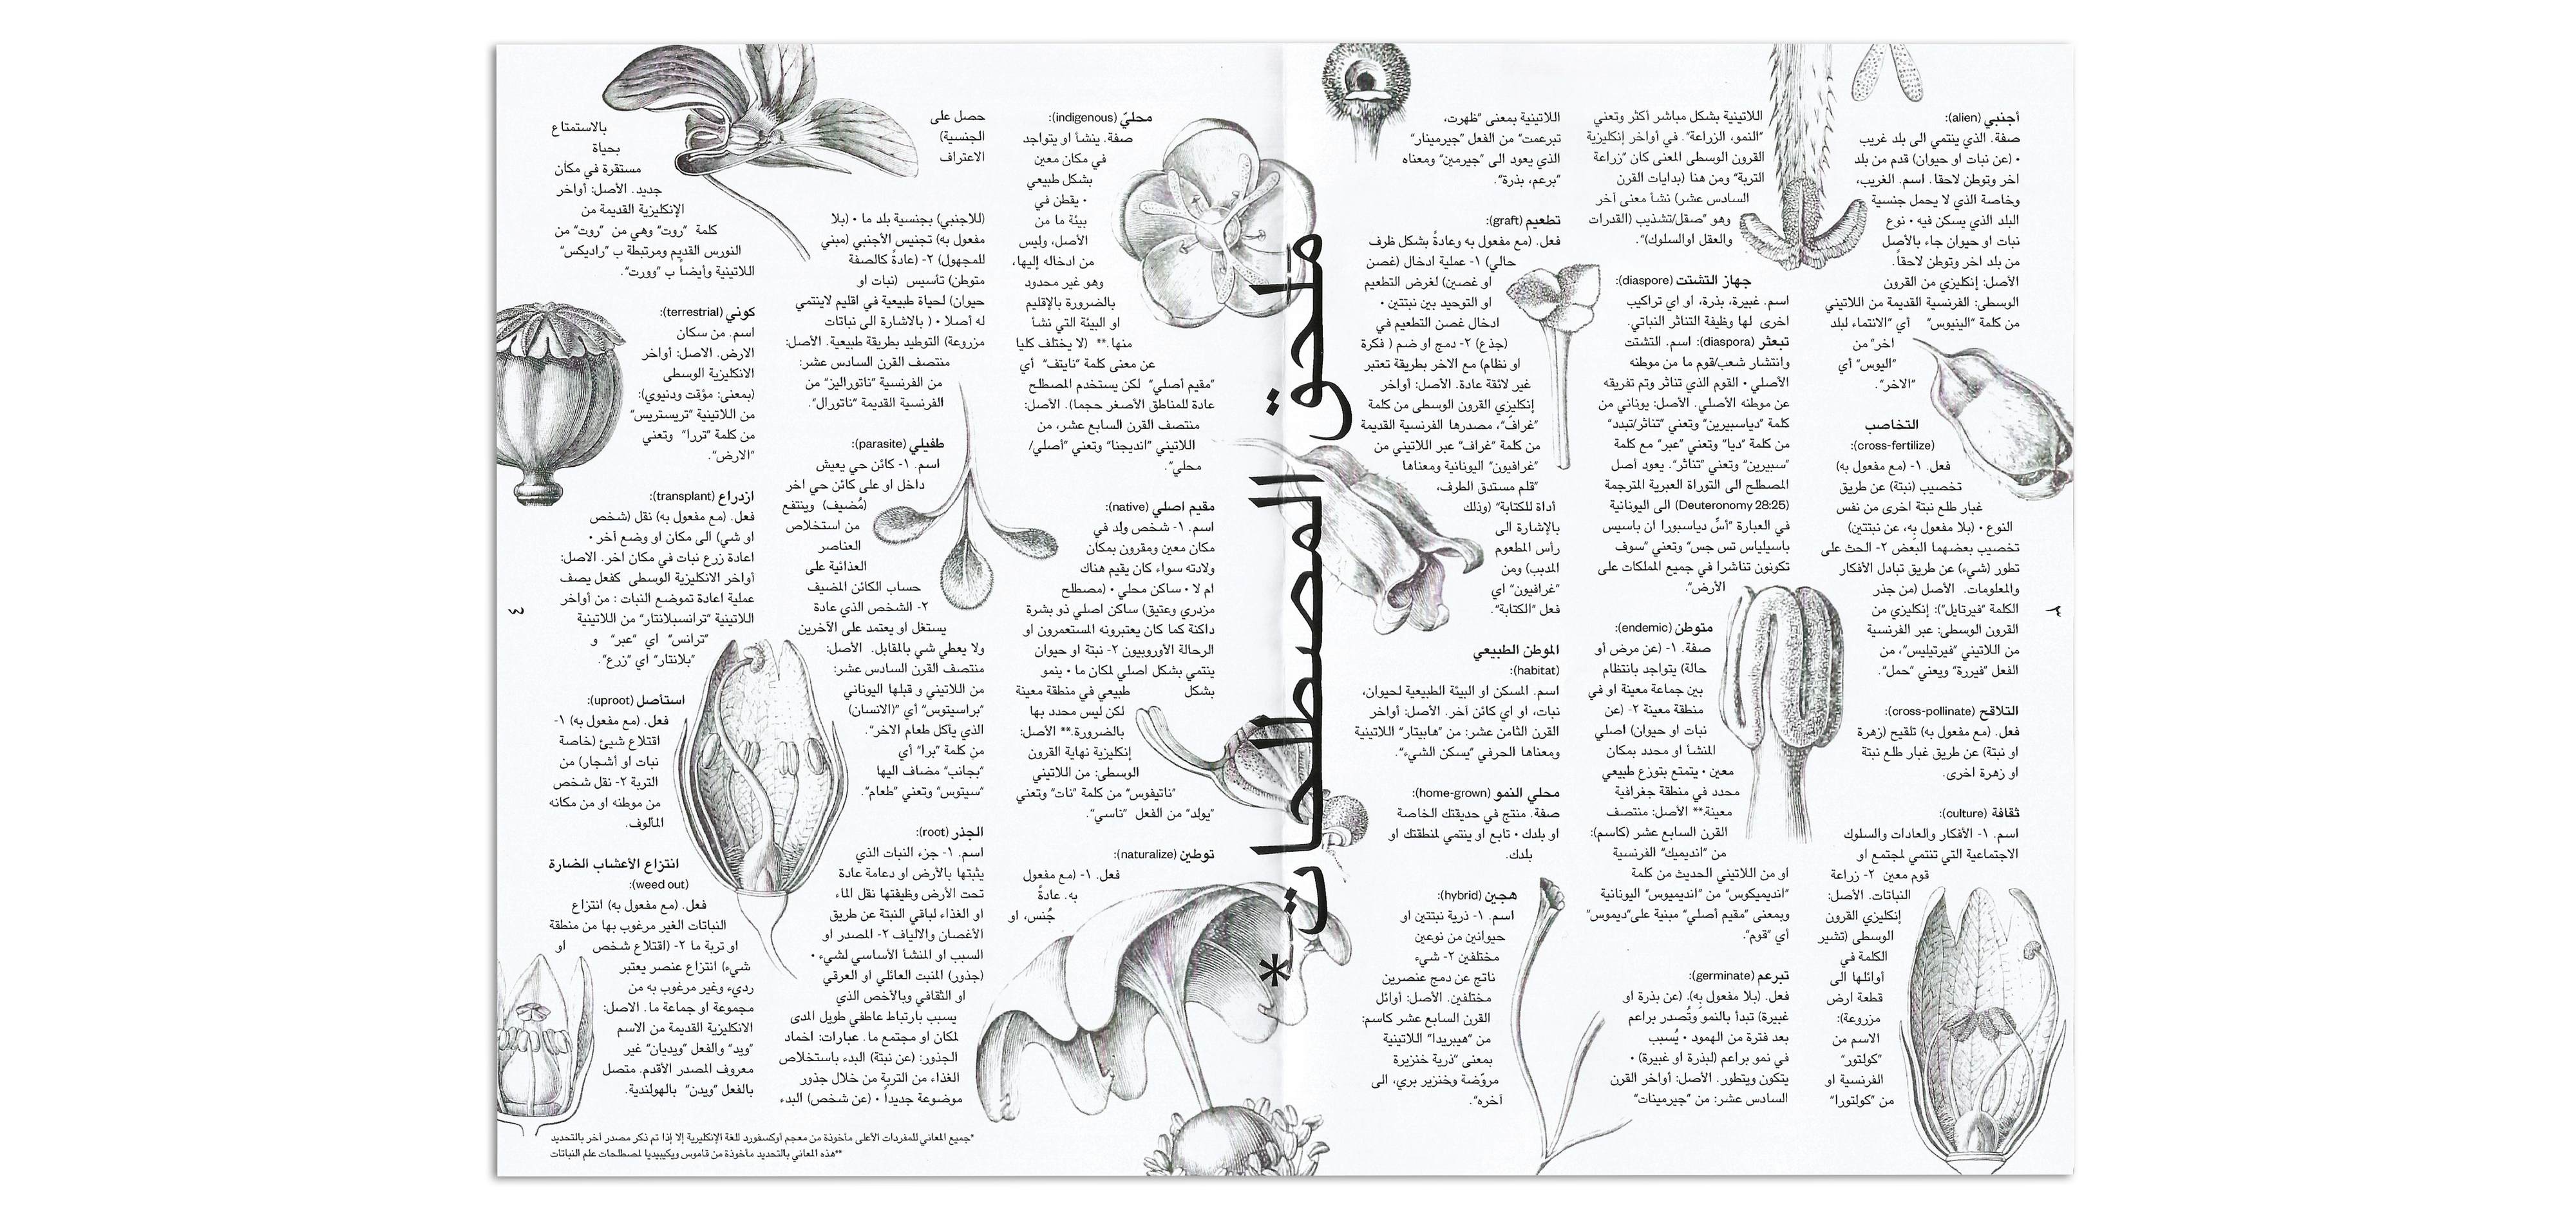 ملحق المصطلحات*
أجنبي (alien):
صفة. الذي ينتمي الى بلد غريب
• (عن نبات او حيوان) قدم من بلد
اخر وتوطن لاحقا. اسم. الغريب،
وخاصة الذي لا يحمل جنسية
البلد الذي يسكن فيه • نوع
نبات او حيوان جاء بالأصل
من بلد اخر وتوطن لاحقاً.
الأصل: إنكليزي من القرون
الوسطى: الفرنسية القديمة من اللاتيني
من كلمة “الينيوس” أي “الانتماء لبلد
اخر” من
“اليوس” أي
“الاخر”.
التخاصب
(cross-fertilize):
فعل. ١- (مع مفعول به)
تخصيب (نبتة) عن طريق
غبار طلع نبتة اخرى من نفس
النوع • (بلا مفعول بِه، عن نبتتين)
تخصيب بعضهما البعض ٢- الحث على
تطور (شيء) عن طريق تبادل الأفكار
والمعلومات. الأصل (من جذر
الكلمة “فيرتايل”): إنكليزي من
القرون الوسطى: عبر الفرنسية
من اللاتيني “فيرتيليس”، من
الفعل “فيررة” ويعني “حمل”.
التلاقح (cross-pollinate):
فعل. (مع مفعول به) تلقيح (زهرة
او نبتة) عن طريق غبار طلع نبتة
او زهرة اخرى.
ثقافة (culture):
اسم. ١- الأفكار والعادات والسلوك
الاجتماعية التي تنتمي لمجتمع او
قوم معين ٢- زراعة
النباتات. الأصل:
إنكليزي القرون
الوسطى (تشير
الكلمة في
أوائلها الى
قطعة ارض
مزروعة):
الاسم من
“كولتور”
الفرنسية او
من “كولتورا”
اللاتينية بشكل مباشر أكثر وتعني
“النمو، الزراعة”. في أواخر إنكليزية
القرون الوسطى المعنى كان “زراعة
التربة” ومن هنا (بدايات القرن
السادس عشر) نشأ معنى آخر
وهو “صقل/تشذيب (القدرات
والعقل اوالسلوك)”.
جهاز التشتت (diaspore):
اسم. غبيرة، بذرة، او اي تراكيب
اخرى لها وظيفة التناثر النباتي.
تبعثر (diaspora): اسم. التشتت
وانتشار شعب/قوم ما من موطنه
الأصلي • القوم الذي تناثر وتم تفريقه
عن موطنه الأصلي. الأصل: يوناني من
كلمة “دياسبيرين” وتعني “تناثر/تبدد”
من كلمة “ديا” وتعني “عبر” مع كلمة
“سبيرين” وتعني “تناثر”. يعود أصل
المصطلح الى التوراة العبرية المترجمة
(Deuteronomy 28:25) الى اليونانية
في العبارة “أسِّ دياسبورا ان باسيس
باسيلياس تس جس” وتعني “سوف
تكونون تناشرا في جميع الملكات على
الأرض”.
متوطن (endemic):
صفة. ١- (عن مرض أو
حالة) يتواجد بانتظام
بين جماعة معينة او في
منطقة معينة ٢- (عن
نبات او حيوان) اصلي
المنشأ او محدد بمكان
معين • يتمتع بتوزع طبيعي
محدد في منطقة جغرافية
معينة.** الأصل: منتصف
القرن السابع عشر (كاسم):
من “انديميك” الفرنسية
او من اللاتيني الحديث من كلمة
“انديميكوس” من “انديميوس” اليونانية
وبمعنى “مقيم أصلي” مبنية على“ديموس”
أي “قوم”.
تبرعم (germinate):
فعل. (بلا مفعول بِه). (عن بذرة او
غبيرة) تبدأ بالنمو وتُصدر براعم
بعد فترة من الهمود • يُسبب
في نمو براعم (لبذرة او غبيرة) •
يتكون ويتطور. الأصل: أواخر القرن
السادس عشر: من “جيرمينات”
اللاتينية بمعنى “ظهرت،
تبرعمت” من الفعل “جيرمينار”
الذي يعود الى “جيرمين” ومعناه
“برعم، بذرة”.
تطعيم (graft):
فعل. (مع مفعول به وعادةً بشكل ظرف
حالي) ١- عملية ادخال (غصن
او غصين) لغرض التطعيم
او التوحيد بين نبتتين •
ادخال غصن التطعيم في
(جذع) ٢- دمج او ضم ( فكرة
او نظام) مع الاخر بطريقة تعتبر
غير لائقة عادة. الأصل: أواخر
إنكليزي القرون الوسطى من كلمة
“غراف”، مصدرها الفرنسية القديمة
من كلمة “غراف” عبر اللاتيني من
“غرافيون” اليونانية ومعناها
“قلم مستدق الطرف،
أداة للكتابة” (وذلك
بالإشارة الى
رأس المطعوم
المدبب) ومن
“غرافيون” اي
فعل “الكتابة”.
الموطن الطبيعي
(habitat):
اسم. المسكن او البيئة الطبيعية لحيوان،
نبات، او اي كائن آخر. الأصل: أواخر
القرن الثامن عشر: من “هابيتار” اللاتينية
ومعناها الحرفي “يسكن الشيء”.
محلي النمو (home-grown):
صفة. منتج في حديقتك الخاصة
او بلدك • تابع او ينتمي لمنطقتك او
بلدك.
هجين (hybrid):
اسم. ١- ذرية نبتتين او
حيوانين من نوعين
مختلفين ٢- شيء
ناتج عن دمج عنصرين
مختلفين. الأصل: أوائل
القرن السابع عشر كاسم:
من “هيبريدا” اللاتينية
بمعنى “ذرية خنزيرة
مروّضة وخنزير بري، الى
آخره”.
٣
محليّ (indigenous):
صفة. ينشأ او يتواجد
في مكان معين
بشكل طبيعي
• يقطن في
بيئة ما من
الأصل، وليس
من ادخاله إليها،
وهو غير محدود
بالضرورة بالإقليم
او البيئة التي نشأ
منها.** (لا يختلف كليا
عن معنى كلمة “نايتف” أي
“مقيم أصلي” لكن يستخدم المصطلح
عادة للمناطق الأصغر حجما). الأصل:
منتصف القرن السابع عشر، من
اللاتيني “انديجنا” وتعني “أصلي/
محلي”.
مقيم اصلي (native):
اسم. ١- شخص ولد في
مكان معين ومقرون بمكان
ولادته سواء كان يقيم هناك
ام لا • ساكن محلي • (مصطلح
مزدري وعتيق) ساكن اصلي ذو بشرة
داكنة كما كان يعتبرونه المستعمرون او
الرحالة الأوروبيون ٢- نبتة او حيوان
ينتمي بشكل اصلي لمكان ما • ينمو
بشكل طبيعي في منطقة معينة
لكن ليس محدد بها
بالضرورة.** الأصل:
إنكليزية نهاية القرون
الوسطى: من اللاتيني
“ناتيفوس” من كلمة “نات” وتعني
“يولد” من الفعل “ناسي”.
توطين (naturalize):
فعل. ١- (مع مفعول
به. عادةً
جُنس، او
حصل على
الجنسية)
الاعتراف
(للاجنبي) بجنسية بلد ما • (بلا
مفعول به) تجنيس الأجنبي (مبني
للمجهول) ٢- (عادةً كالصفة
متوطن) تأسيس (نبات او
حيوان) لحياة طبيعية في اقليم لاينتمي
له أصلا • ( بالاشارة الى نباتات
مزروعة) التوطيد بطريقة طبيعية. الأصل:
منتصف القرن السادس عشر:
من الفرنسية “ناتوراليز” من
الفرنسية القديمة “ناتورال”.
طفيلي (parasite):
اسم. ١- كائن حي يعيش
داخل او على كائن حي اخر
(مُضيف) وينتفع
من استخلاص
العناصر
الغذائية على
حساب الكائن المضيف
٢- الشخص الذي عادة
يستغل او يعتمد على الآخرين
ولا يعطي شي بالمقابل. الأصل:
منتصف القرن السادس عشر:
من اللاتيني و قبلها اليوناني
“براسيتوس” أي “(الانسان)
الذي يأكل طعام الاخر”.
من كلمة “برا” أي
“بجانب” مضاف اليها
“سيتوس” وتعني “طعام”.
الجذر (root):
اسم. ١- جزء النبات الذي
يثبتها بالأرض او دعامة عادة
تحت الأرض وظيفتها نقل الماء
او الغذاء لباقي النبتة عن طريق
الأغصان والالياف ٢- المصدر او
السبب او المنشأ الأساسي لشيء •
(جذور) المنبت العائلي او العرقي
او الثقافي وبالأخص الذي
يسبب بارتباط عاطفي طويل المدى
لمكان او مجتمع ما. عبارات: اخماد
الجذور: (عن نبتة) البدء باستخلاص
الغذاء من التربة من خلال جذور
موضوعة جديداً • (عن شخص) البدء
بالاستمتاع
بحياة
مستقرة في مكان
جديد. الأصل: أواخر
الإنكليزية القديمة من
كلمة “روت” وهي من “روت” من
النورس القديم ومرتبطة ب “راديكس”
اللاتينية وأيضاً ب “وورت”.
كوني (terrestrial):
اسم. من سكان
الارض. الاصل: أواخر
الانكليزية الوسطى
(بمعنى: مؤقت ودنيوي):
من اللاتينية “تريستريس”
من كلمة “تررا” وتعني
“الارض”.
ازدراع (transplant):
فعل. (مع مفعول به) نقل (شخص
او شي) الى مكان او وضع آخر •
اعادة زرع نبات في مكان اخر. الاصل:
أواخر الانكليزية الوسطى كفعل يصف
عملية اعادة تموضع النبات : من أواخر
اللاتينية “ترانسبلانتار” من اللاتينية
“ترانس” اي “عبر” و
“بلانتار” اي “زرع”.
استأصل (uproot):
فعل. (مع مفعول به) ١-
اقتلاع شيئ (خاصة
نبات او أشجار) من
التربة ٢- نقل شخص
من موطنه او من مكانه
المألوف.
انتزاع الأعشاب الضارة
(weed out):
فعل. (مع مفعول به) انتزاع
النباتات الغير مرغوب بها من منطقة
او تربة ما ٢- (اقتلاع شخص او
شيء) انتزاع عنصر يعتبر
رديء وغير مرغوب به من
مجموعة او جماعة ما. الاصل:
الانكليزية القديمة من الاسم
“ويد” والفعل “ويديان” غير
معروف المصدر الأقدم. متصل
بالفعل “ويدن” بالهولندية.
*جميع المعاني للمفردات الأعلى مأخوذة من معجم أوكسفورد للغة الإنكليزية إلا إذا تم ذكر مصدر آخر بالتحديد
**هذه المعاني بالتحديد مأخوذة من قاموس ويكيبيديا لمصطلحات علم النباتات
٤